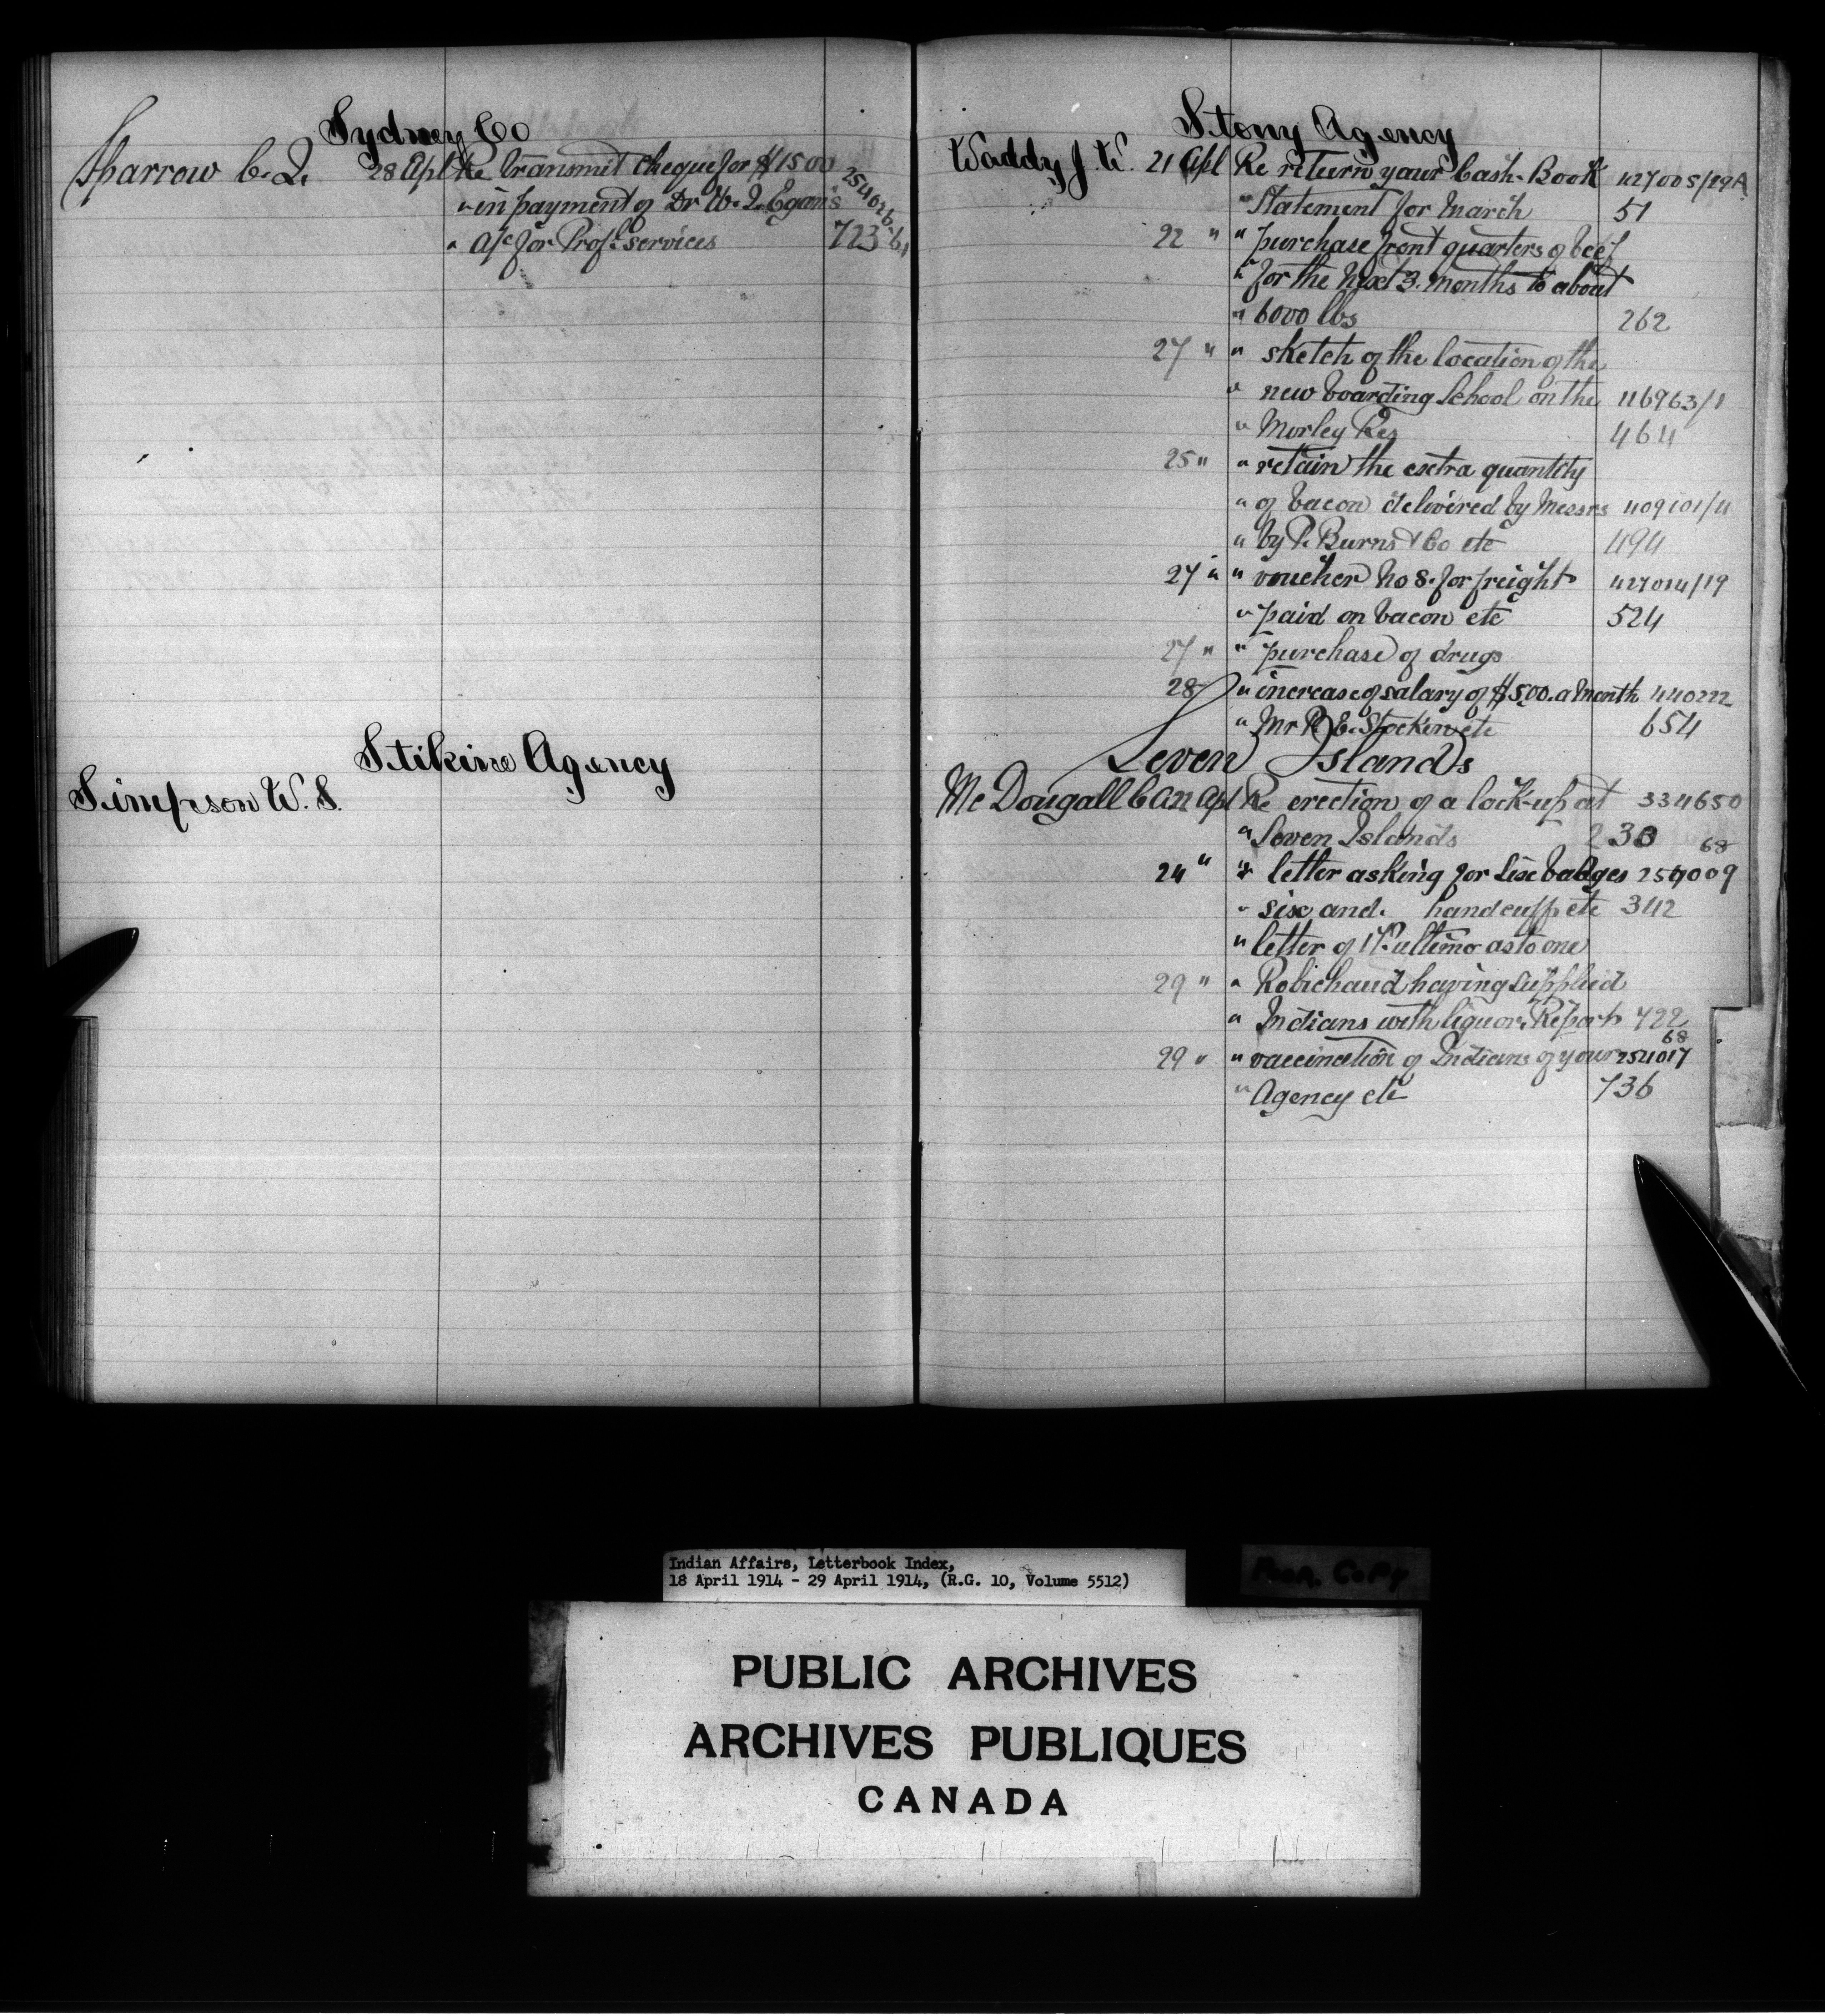 Sydney Co
Sparrow C. J. 28 Apl Re Transmit cheque for $15 00 254026-61
" in payment of Dr W. J. Egan's
" A/c for Prof. Services 723
Stikine Agency
Simpson W. S.
Stony Agency
Waddy J. W. 21 Apl Re return your Cash-Book 427005/29A
" Statement for March 51
22 " " purchase front quarters of beef
" for the next 3 months to about
" 6000 lbs 262
27 " " sketch of the location of the
" new boarding School on the 116963/1
" Morley Res 464
25 " " retain the extra quantity
" of bacon delivered by Messrs 409101/4
" by P. Burns & Co etc 494
27 " " voucher No 8. for freight 427014/19
" paid on bacon etc 524
27 " " purchase of drugs
28 " increase of salary of $5.00. a Month 440222
" Mr R. E. Stocken etc 654
Seven Islands
Mc Dougall C A 22 Apl Re erection of a lock-up at 334650
" Seven Islands 230
24 " " letter asking for six badges 254009 68
" six and handcuff etc 342
" letter of 17 ultimo as to one
29 " " Robichaud having supplied
" Indians with liquor. Report 722
29 " " vaccination of Indians of your 254017 68
" Agency etc 736
Indian Affairs, Letterbook Index,
18 April 1914 - 29 April 1914, (R.G. 10, Volume 5512)
Poor Copy
PUBLIC ARCHIVES
ARCHIVES PUBLIQUES
CANADA